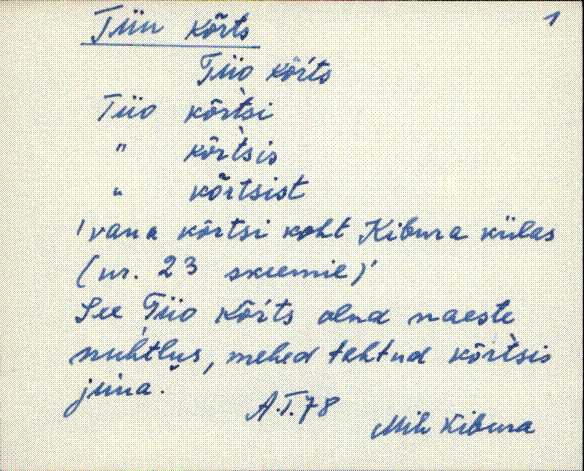 Tiiu kõrts 1
Tiio kõ̀rts
Tiio kõ̀rtsi
" kõ̀rtsis
" kõ̀rtsist
'vana kõrtsi koht Kibura külas
(nr. 23 skeemil)'
See Tiio kõ̀rts olnd naeste
nuhtlus, mehed tehtud kõ̀rtsis
juua.
A.T.78
Mih Kibura